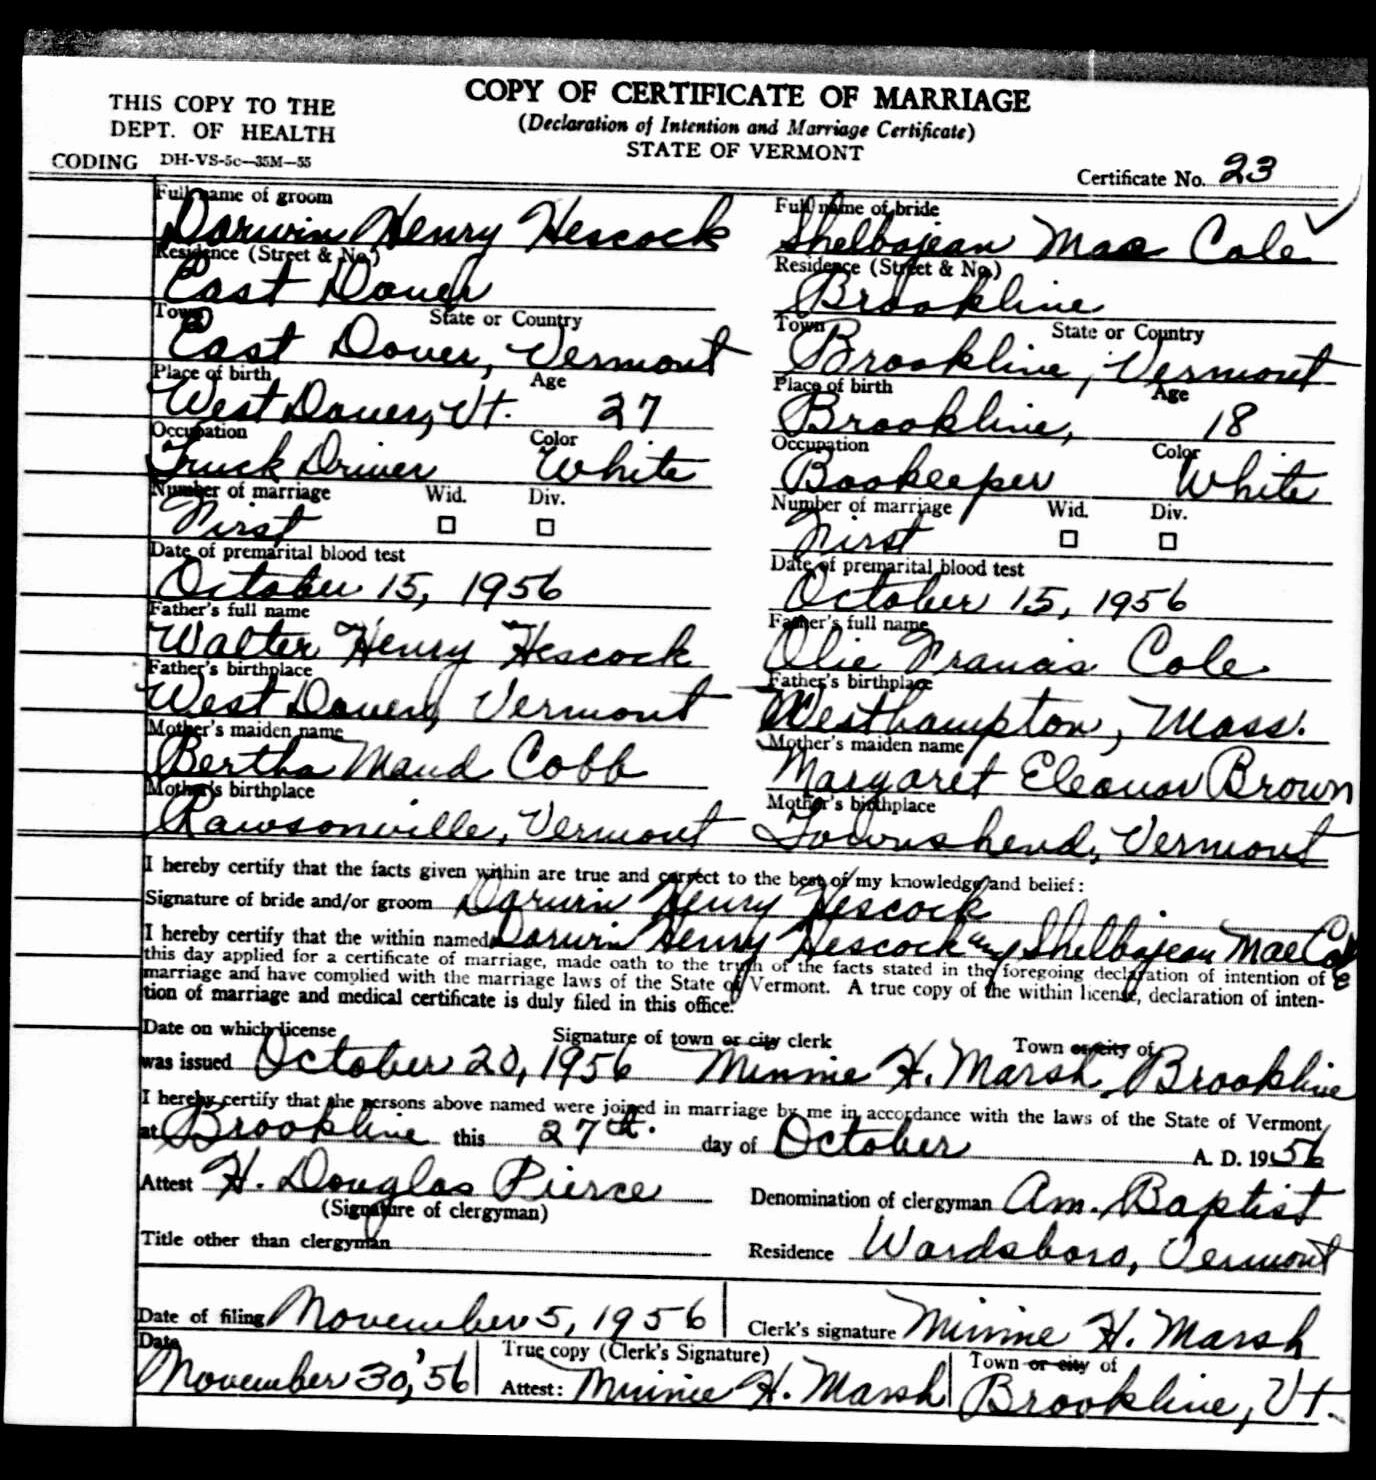 THIS COPY TO THE
DEPT. OF HEALTH
CODING DH-VS-5c—35M—55
COPY OF CERTIFICATE OF MARRIAGE
(Declaration of Intention and Marriage Certificate)
STATE OF VERMONT
Certificate No. 23
Full name of groom Full name of bride
Darwin Henry Hescock Shelbajean Mae Cole
Residence (Street & No.) Residence (Street & No.)
East Dover Brookline
Town State or Country Town State or Country
East Dover, Vermont Brookline, Vermont
Place of birth Age Place of birth Age
West Dover, Vt. 27 Brookline, 18
Occupation Color Occupation Color
Truck Driver White Bookeeper White
Number of marriage Wid. Div. Number of marriage Wid. Div.
First □ □ First □ □
Date of premarital blood test Date of premarital blood test
October 15, 1956 October 15, 1956
Father's full name Father's full name
Walter Henry Hescock Olie Francis Cole
Father's birthplace Father's birthplace
West Dover, Vermont Westhampton, Mass.
Mother's maiden name Mother's maiden name
Bertha Maud Cobb Margaret Eleanor Brown
Mother's birthplace Mother's birthplace
Rawsonville, Vermont Townshend, Vermont
I hereby certify that the facts given within are true and correct to the best of my knowledge and belief:
Signature of bride and/or groom Darwin Henry Hescock
I hereby certify that the within named Darwin Henry Hescock and Shelbajean Mae Cole
this day applied for a certificate of marriage, made oath to the truth of the facts stated in the foregoing declaration of intention of
marriage and have complied with the marriage laws of the State of Vermont. A true copy of the within license, declaration of inten-
tion of marriage and medical certificate is duly filed in this office.
Date on which license Signature of town or city clerk Town or city of
was issued October 20, 1956 Minnie H. Marsh, Brookline
I hereby certify that the persons above named were joined in marriage by me in accordance with the laws of the State of Vermont
at Brookline this 27th. day of October A. D. 1956
Attest H. Douglas Pierce Denomination of clergyman Am. Baptist
(Signature of clergyman)
Title other than clergyman Residence Wardsboro, Vermont
Date of filing November 5, 1956 Clerk's signature Minnie H. Marsh
Date True copy (Clerk's Signature) Town or city of
November 30, '56 Attest: Minnie H. Marsh Brookline, Vt.